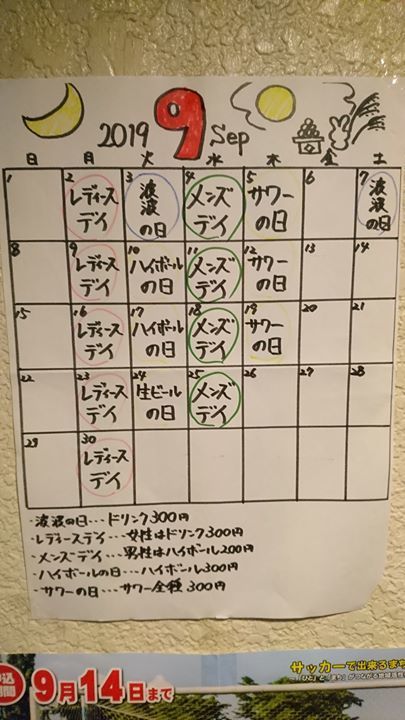 2019 9 Sep
日 月 火 水 木 金 土
1 2 レディース デイ 3 波波の日 4 メンズ デイ 5 サワーの日 6 7 波波の日
8 9 レディース デイ 10 ハイボールの日 11 メンズ デイ 12 サワーの日 13 14
15 16 レディース デイ 17 ハイボールの日 18 メンズ デイ 19 サワーの日 20 21
22 23 レディース デイ 24 生ビールの日 25 メンズ デイ 26 27 28
29 30 レディース デイ
・波波の日…ドリンク300円
・レディースデイ…女性はドリンク300円
・メンズデイ…男性はハイボール200円
・ハイボールの日…ハイボール300円
・サワーの日…サワー全種300円
サッカーで出来るまち
9月14日まで